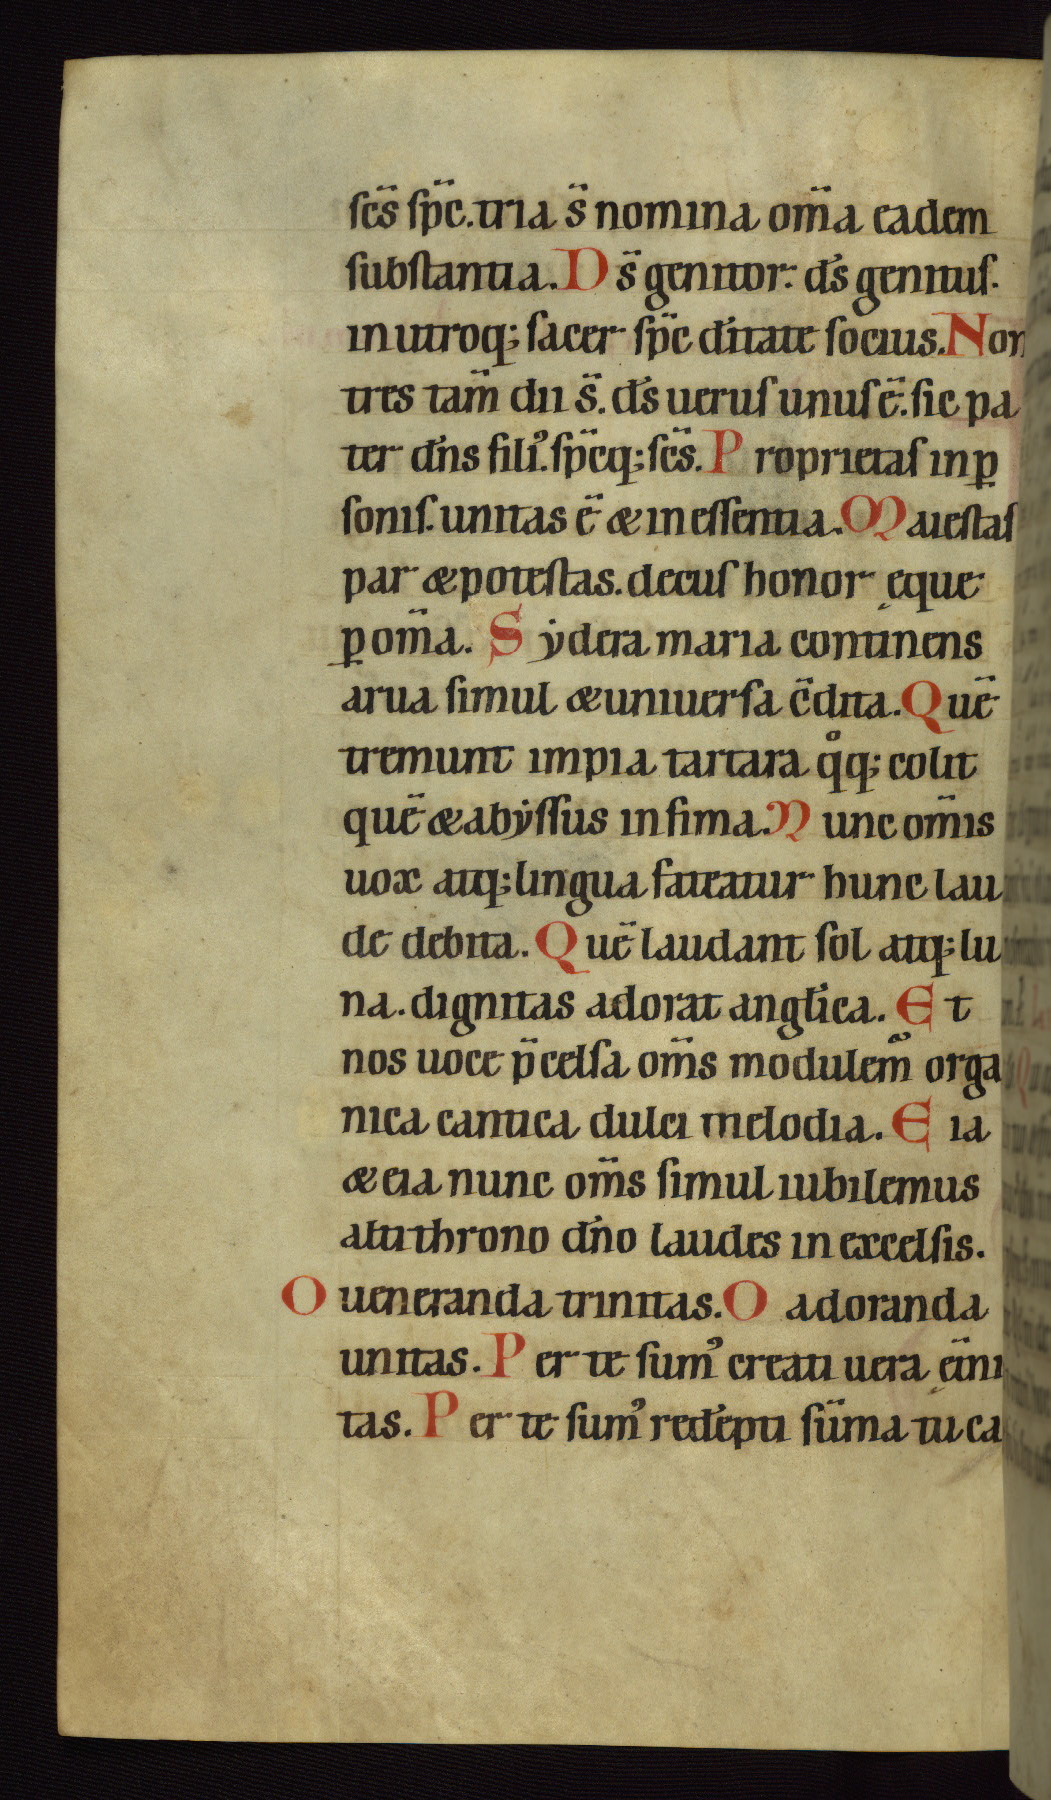 sc̄s sp̄c. tria s̄ nomina om̄a eadem
substantia. Ds̄ genitor. ds̄ genitus.
in utroq; sacer sp̄c d̄itate socius. Non
tres tam̄ dii s̄. ds̄ uerus unus ē. sic pa
ter dn̄s fili᾽. sp̄cq; sc̄s. Proprietas in ꝑ
sonis. unitas ē & in essentia. Maiestas
par & potestas. decus honor ęque
ꝑ om̄a. Sẏdera maria continens
arua simul & uniuersa c̄dita. Quē
tremunt impia tartara qͦq; colit
quē & abẏssus infima. Nunc om̄is
uox atq; lingua fateatur hunc lau
de debita. Quē laudant sol atq; lu
na. dignitas adorat anglica. Et
nos uoce p̄celsa om̄s modulem᾽ orga
nica cantica dulci melodia. Eia
& eia nunc om̄s simul iubilemus
altithrono dn̄o laudes in excelsis.
O ueneranda trinitas. O adoranda
unitas. Per te sum᾽ creati uera ęt̄ni
tas. Per te sum᾽ redēpti sūma tu ca